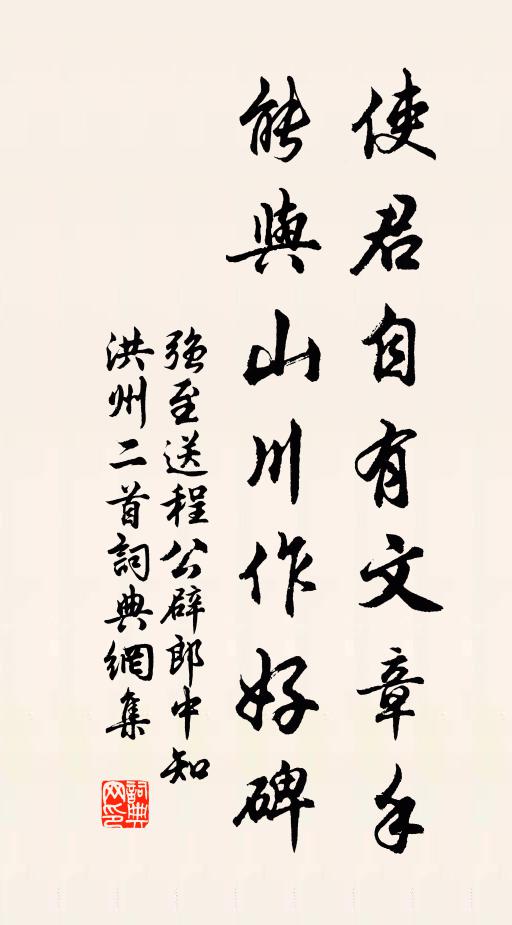 使君自有文章手
能與山川作好碑
強至送程公辟郎中知
洪州二首詞典網集
詞典网印